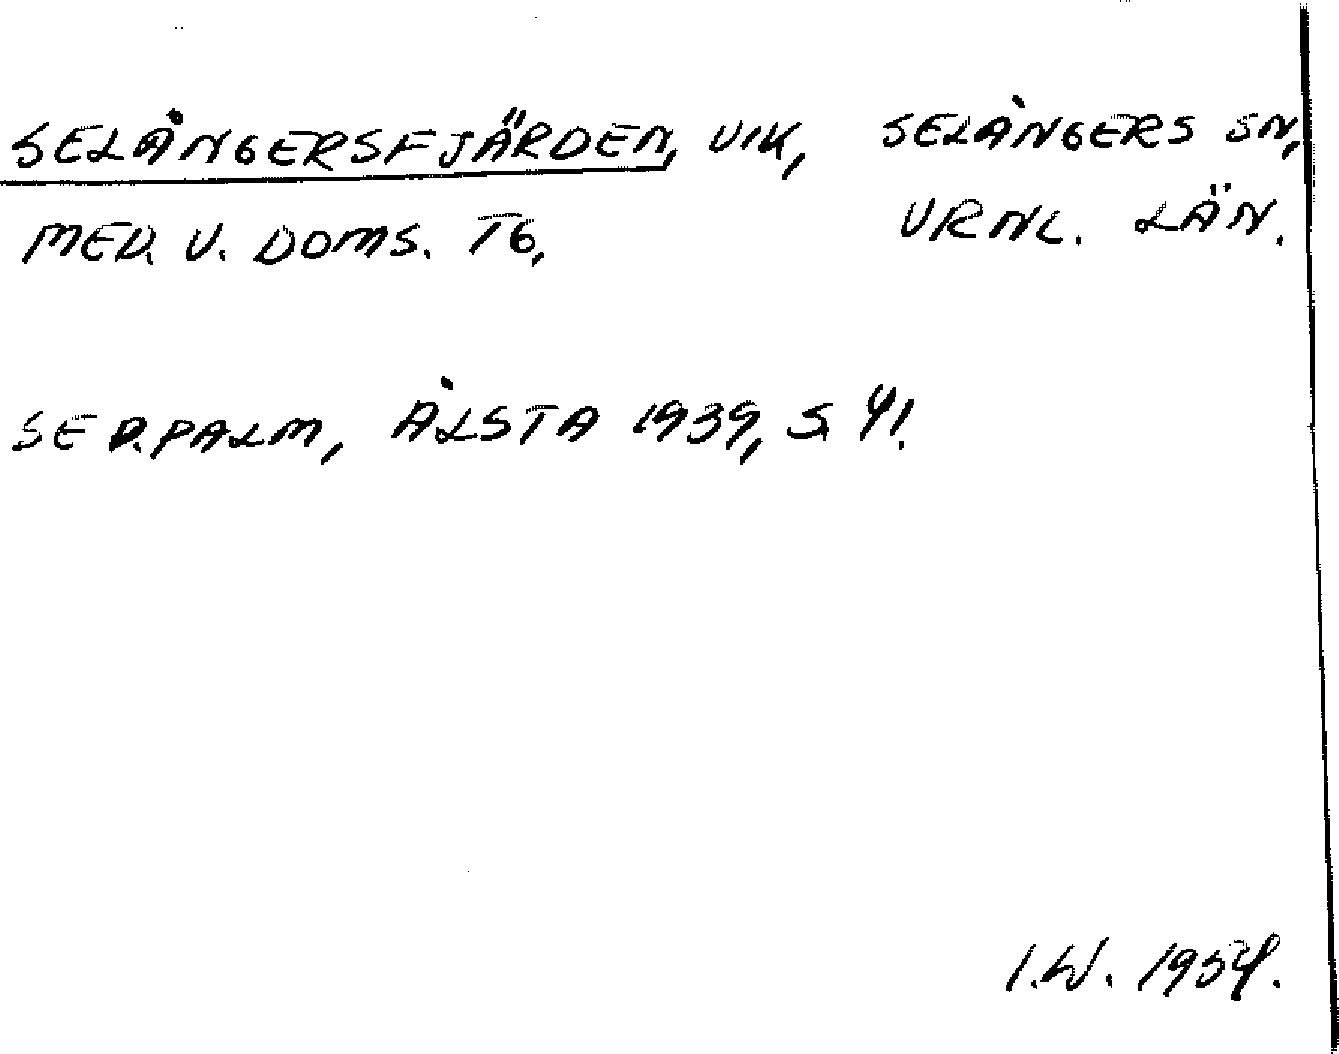 SELÅNGERSFJÄRDEN, VIK, SELÅNGERS SN,
MED. V. DOMS. TG, VRNL. LÄN.
SE D. PALM, ÅLSTA 1939, S. 41.
I.W. 1954.